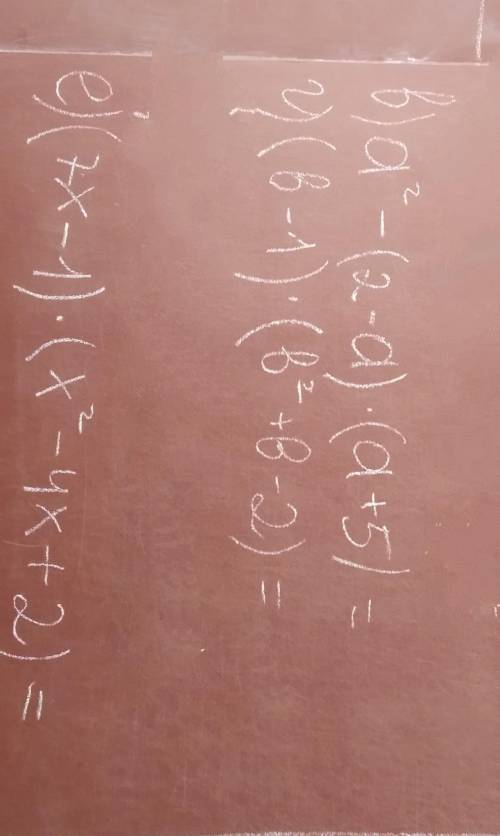 в) a² - (2 - a) · (a + 5) =
г) (в - 1) · (в² + в - 2) =
е) (7x - 1) · (x² - 4x + 2) =